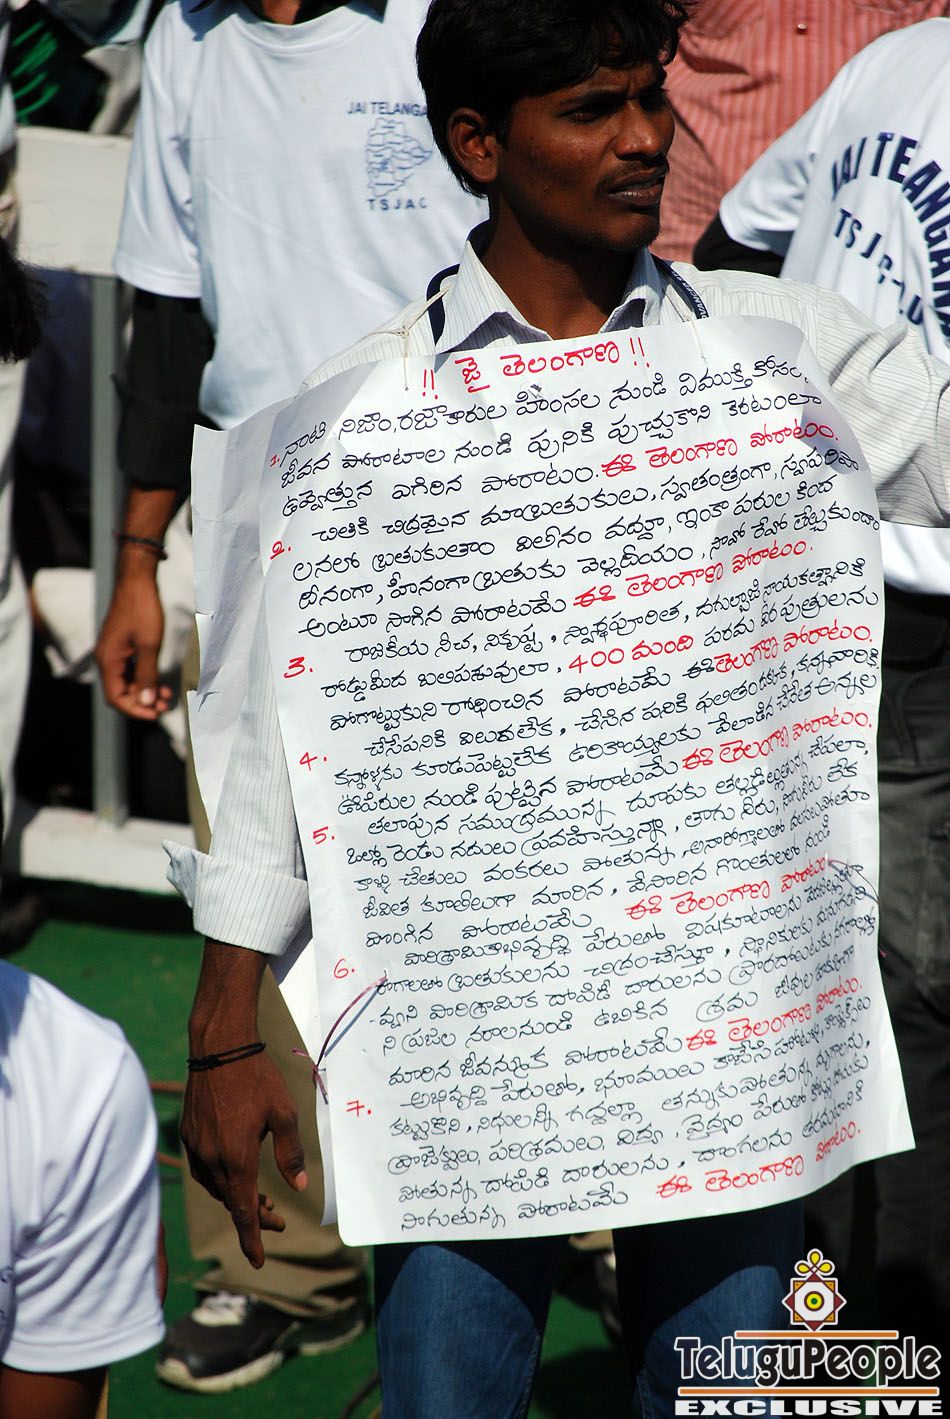 JAI TELANGA
TSJAC
JAI TELANGANA
TSJ
!! జై తెలంగాణ !!
1. నాటి నిజాం, రజాకారుల హింసల నుండి విముక్తి కోసం,
జీవన పోరాటాల నుండి పునికి పుచ్చుకొని కెరటంలా
ఉవ్వెత్తున ఎగిరిన పోరాటం. ఈ తెలంగాణ పోరాటం.
2. చితికి చిద్రమైన మాబ్రతుకులు, స్వతంత్రంగా, స్వపరిపా
లనలో బ్రతుకుతాం విలీనం వద్దూ, ఇంకా పరుల కింద
దీనంగా, హీనంగా బ్రతుకు వెల్లదీయం, చావో రేవో తేల్చుకుందాం
అంటూ సాగిన పోరాటమే ఈ తెలంగాణ పోరాటం.
3. రాజకీయ నీచ, నికృష్ట, స్వార్థపూరిత, దగుల్బాజి నాయకత్వానికి
రోడ్డుమీద బలిపశువులా, 400 మంది పరమ వీర పుత్రులను
పోగొట్టుకుని రోధించిన పోరాటమే ఈ తెలంగాణ పోరాటం.
4. చేసేపనికి విలువలేక, చేసిన పనికి ఫలితం దక్కక, కన్నవారికి,
కన్నోళ్ళకు కూడుపెట్టలేక ఉరికొయ్యలకు వేలాడిన చేనేత అన్నల
ఊపిరుల నుండి పుట్టిన పోరాటమే ఈ తెలంగాణ పోరాటం.
5. తలాపున సముద్రమున్న దూపకు తల్లడిల్లుతున్న చేపలా,
ఒంట్లో రెండు నదులు ప్రవహిస్తున్నా, తాగు నీరు, సాగునీరు లేక
కాళ్ళు చేతులు వంకరలు పోతున్న, అనారోగ్యాలతో
జీవిత కూతలుగా మారిన, వేసారిన గొంతులలో నుండి
పొంగిన పోరాటమే ఈ తెలంగాణ పోరాటం
6. పారిశ్రామికాభివృద్ధి పేరుతో విషకూటాలను
రోగాలతో బ్రతుకులను చిద్రంచేస్తూ, స్థానికులకు
వ్వని పారిశ్రామిక దోపిడీ దారులను పారదోలుటకు
ని ప్రజల నరాలనుండి ఉబికిన శ్రమ
మారిన జీవన్మృత పోరాటమే ఈ తెలంగాణ పోరాటం.
7. అభివృద్ధి పేరుతో, భూములు కాజేసి
కట్టుకొని, నిధులన్నీ గద్దల్లా తన్నుకుపోతున్న
ప్రాజెక్టులు, పరిశ్రమలు, విద్యా, వైద్యం పేరుతో
పోతున్న దోపిడి దారులను, దొంగలను తరమడానికి
సాగుతున్న పోరాటమే ఈ తెలంగాణ పోరాటం.
TeluguPeople
EXCLUSIVE